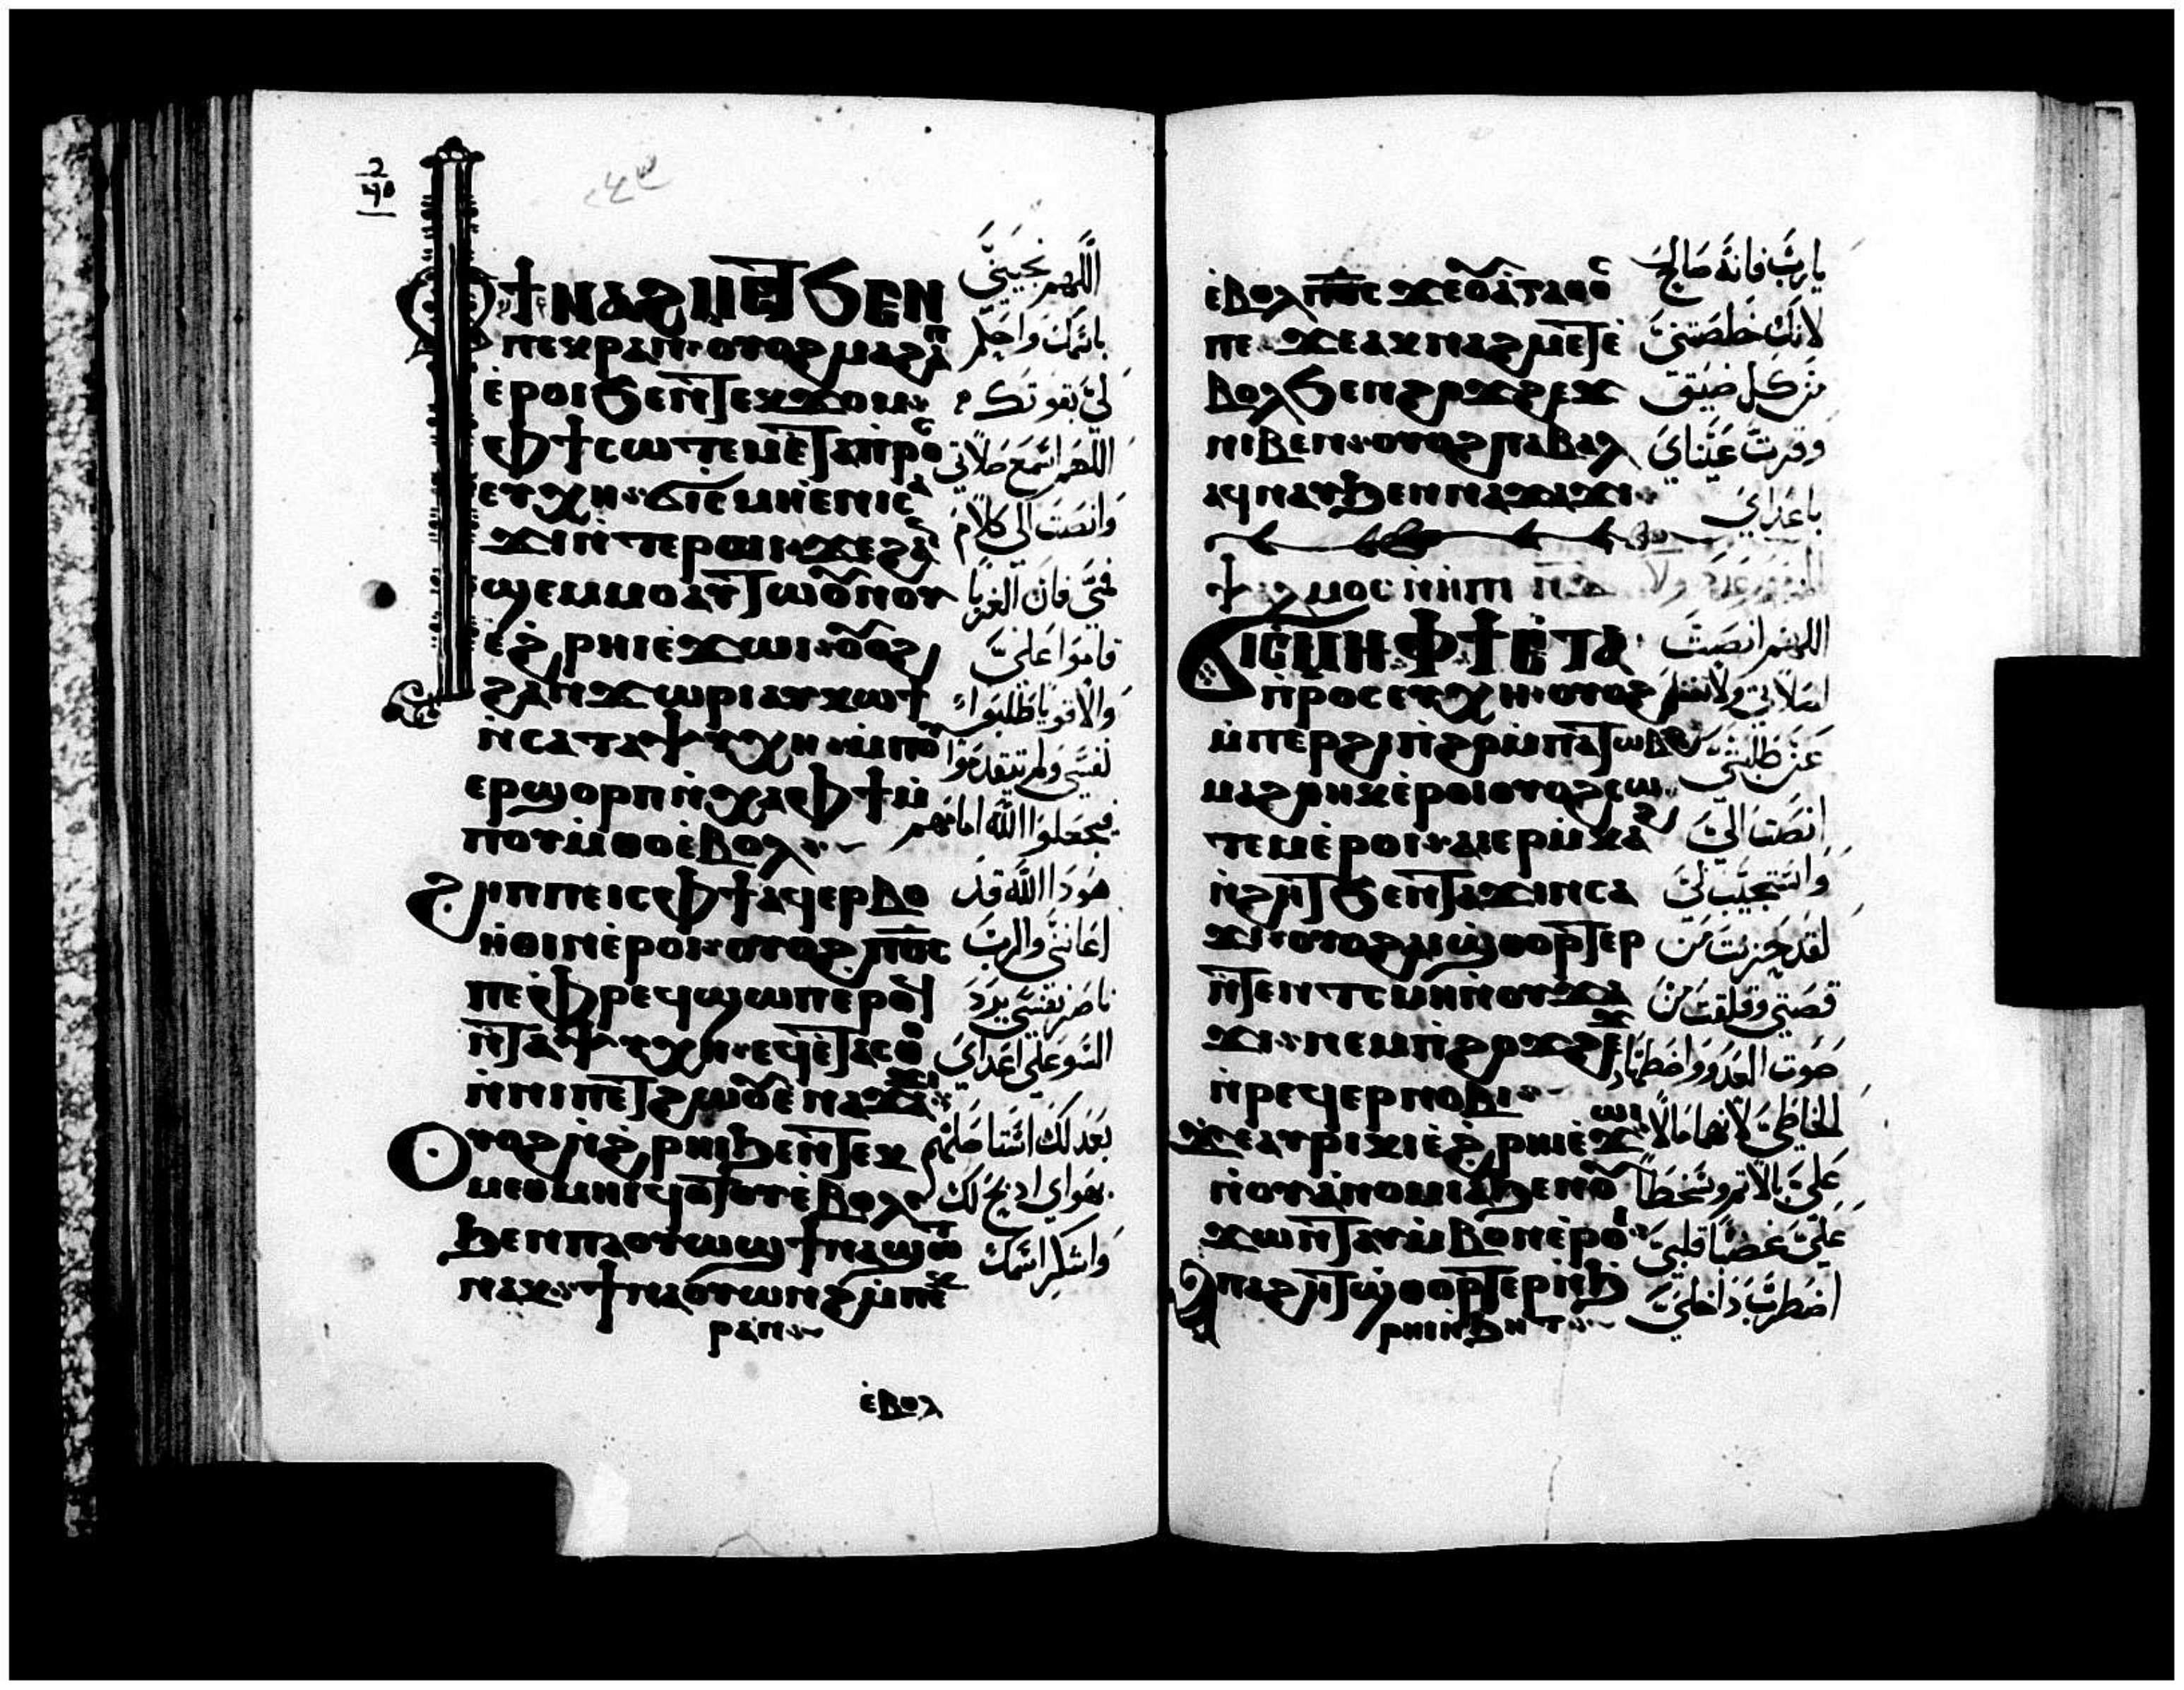 ⲫϯⲛⲁϩⲙⲉⲧ ϧⲉⲛ
ⲡⲉⲕⲣⲁⲛ ⲟⲩⲟϩ ⲙⲁϩⲁⲡ
ⲉⲣⲟⲓ ϧⲉⲛⲧⲉⲕϫⲟⲙ
ⲫϯ ⲥⲱⲧⲉⲙ ⲉⲧⲁⲡⲣⲟⲥ
ⲉⲩⲭⲏ ϭⲓⲥⲙⲏ ⲉⲛⲓⲥⲁ
ϫⲓ ⲛⲧⲉ ⲣⲱⲓ ϫⲉ ϩⲁⲛ
ϣⲉⲙⲙⲟ ⲁⲩⲧⲱⲟⲩⲛⲟⲩ
ⲉϩⲣⲏⲓ ⲉϫⲱⲓ ⲟⲩⲟϩ
ϩⲁⲛϫⲱⲣⲓ ⲁⲩⲕⲱϯ
ⲛⲥⲁ ⲧⲁⲯⲩⲭⲏ ⲙⲡⲟⲩ
ⲉⲣϣⲟⲣⲡ ⲛⲭⲁ ⲫϯ ⲙ
ⲡⲟⲩⲙⲑⲟ ⲉⲃⲟⲗ
ϩⲏⲡⲡⲉ ⲓⲥ ⲫϯ ⲁϥⲉⲣⲃⲟ
ⲏⲑⲓⲛ ⲉⲣⲟⲓ ⲟⲩⲟϩ ⲡⲟⲥ
ⲡⲉ ⲫⲣⲉϥϣⲱⲡ ⲉⲣⲟϥ
ⲛⲧⲁⲯⲩⲭⲏ ⲉϥⲉⲧⲁⲥⲑⲟ
ⲛⲛⲓⲡⲉⲧϩⲱⲟⲩ ⲉⲛⲁϫⲁϫⲓ
ⲟⲩⲟϩ ⲛϩⲣⲏⲓ ϧⲉⲛ ⲧⲉⲕ
ⲙⲉⲑⲙⲏⲓ ϥⲟⲧⲟⲩ ⲉⲃⲟⲗ
ϧⲉⲛ ⲡⲁⲟⲩⲱϣ ϯⲛⲁϣⲱⲧ
ⲛⲁⲕ ϯⲛⲁⲟⲩⲱⲛϩ ⲙⲡⲉⲕ
ⲣⲁⲛ
ⲉⲃⲟⲗ
اللهم نجيني
باسمك واحكم
لي بقوتك
اللهم اسمع صلاتي
وانصت الي كلام
فمي فان الغربا
قاموا علي
والاقويا طلبوا
نفسي ولم يتقدموا
فيجعلوا الله امامهم
هودا الله قد
اعانني والرب
ناصر نفسي يردد
السو علي اعداي
واشكر اسمك
ⲉⲃⲟⲗ ⲡⲟⲥ ϫⲉ ⲟⲩⲁⲅⲁⲑⲟⲥ
ⲡⲉ ϫⲉ ⲁⲕⲛⲁϩⲙⲉⲧ ⲉ
ⲃⲟⲗ ϧⲉⲛ ϩⲟϫϩⲉϫ
ⲛⲓⲃⲉⲛ ⲟⲩⲟϩ ⲡⲁⲃⲁⲗ
ⲁϥⲛⲁⲩ ϧⲉⲛ ⲛⲁϫⲁϫⲓ
ϭⲓⲥⲙⲏ ⲫϯ ⲉⲧⲁ
ⲡⲣⲟⲥⲉⲩⲭⲏ ⲟⲩⲟϩ
ⲙⲡⲉⲣϩⲓⲡϩⲟ ⲙⲡⲁⲧⲱⲃϩ
ⲙⲁϩⲑⲏⲕ ⲉⲣⲟⲓ ⲟⲩⲟϩ ⲥⲱ
ⲧⲉⲙ ⲉⲣⲟⲓ ⲁⲓⲉⲣⲙⲕⲁϩ
ⲛϩⲏⲧ ϧⲉⲛ ⲧⲁϫⲓⲛⲥⲁ
ϫⲓ ⲟⲩⲟϩ ⲁⲓϣⲑⲟⲣⲧⲉⲣ
ⲛⲧⲉⲛ ⲧⲥⲙⲏ ⲛⲟⲩϫⲁ
ϫⲓ ⲛⲉⲙ ⲡϩⲟϫϩⲉϫ
ⲛⲣⲉϥⲉⲣⲛⲟⲃⲓ
ϫⲉ ⲁⲩⲣⲓⲕⲓ ⲉϩⲣⲏⲓ ⲉϫⲱⲓ
ⲛⲟⲩⲁⲛⲟⲙⲓⲁ ϧⲉⲛ ⲟⲩ
ϫⲱⲛⲧ ⲁⲩⲙⲃⲟⲛ ⲉⲣⲟⲓ
ⲡⲁϩⲏⲧ ϣⲑⲟⲣⲧⲉⲣ ⲛϧ
ⲣⲏⲓ ⲛϧⲏⲧ
يارب فانه صالح
لانك خلصتني
من كل ضيق
وقرت عيناي
باعداي
اللهم انصت
لصلاتي ولا
عن طلبتي
انصت الي
واستجيب لي
لقد حزنت من
قصتي وقلقت من
صوت العدو واضطهاد
الخاطي لانهما مالا
علي بالاثم وسخطا
علي غضبا قلبي
اضطرب داخلي